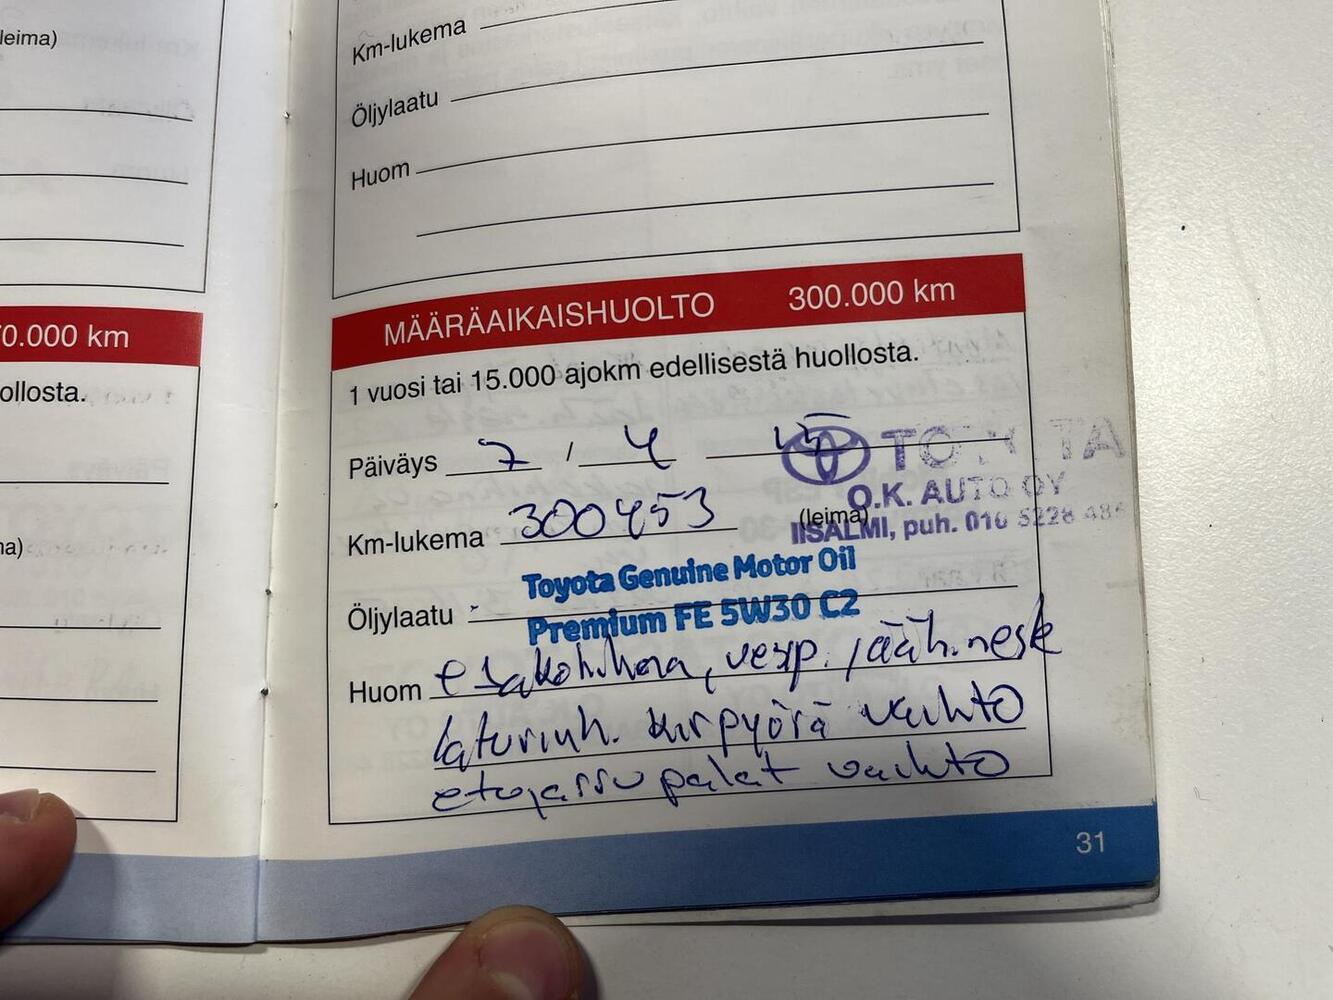 leima)
0.000 km
ollosta.
na)
Km-lukema
Öljylaatu
Huom
MÄÄRÄAIKAISHUOLTO 300.000 km
1 vuosi tai 15.000 ajokm edellisestä huollosta.
Päiväys 7 / 4 15
TOYOTA
O.K. AUTO OY
Km-lukema 300453 (leima)
IISALMI, puh. 010 5228 486
Toyota Genuine Motor Oil
Öljylaatu
Premium FE 5W30 C2
Huom esakohihna, vesip. jääh.neste
laturinh. kirpyörä vaihto
etujarrupalat vaihto
31